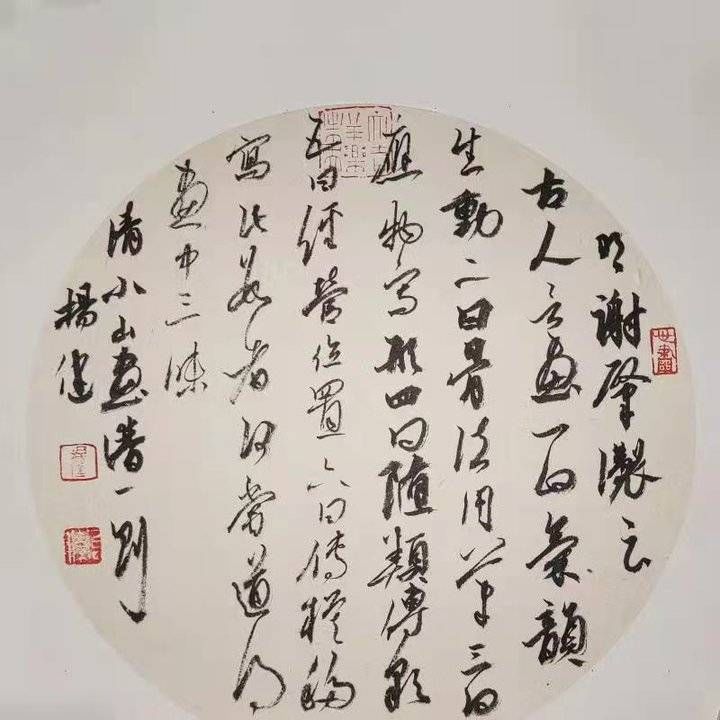 明謝肇淛云
古人言畫一曰氣韻
生動二曰骨法用筆三曰
應物写形四曰隨類傅彩
五曰經營位置六曰傳模移
寫此數者何嘗道得
畫中三昧
清小山畫譜一則
楊健